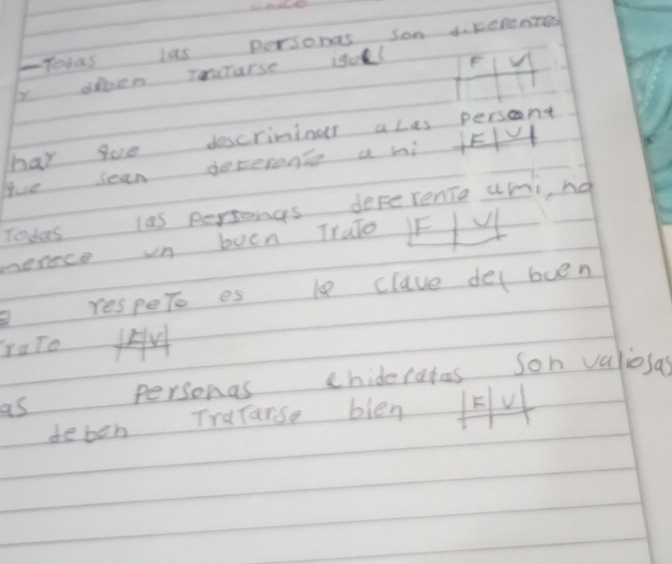 -Todas las personas son diferentes
y deben tratarse igual
F V
hay que descriminar a las persona
que sean deferente a mi F V
Todas las personas deferente a mi, no
merece un buen trato F V
respeto es la clave del buen
trato F V
as personas son valiosas
deben Tratarse bien F V